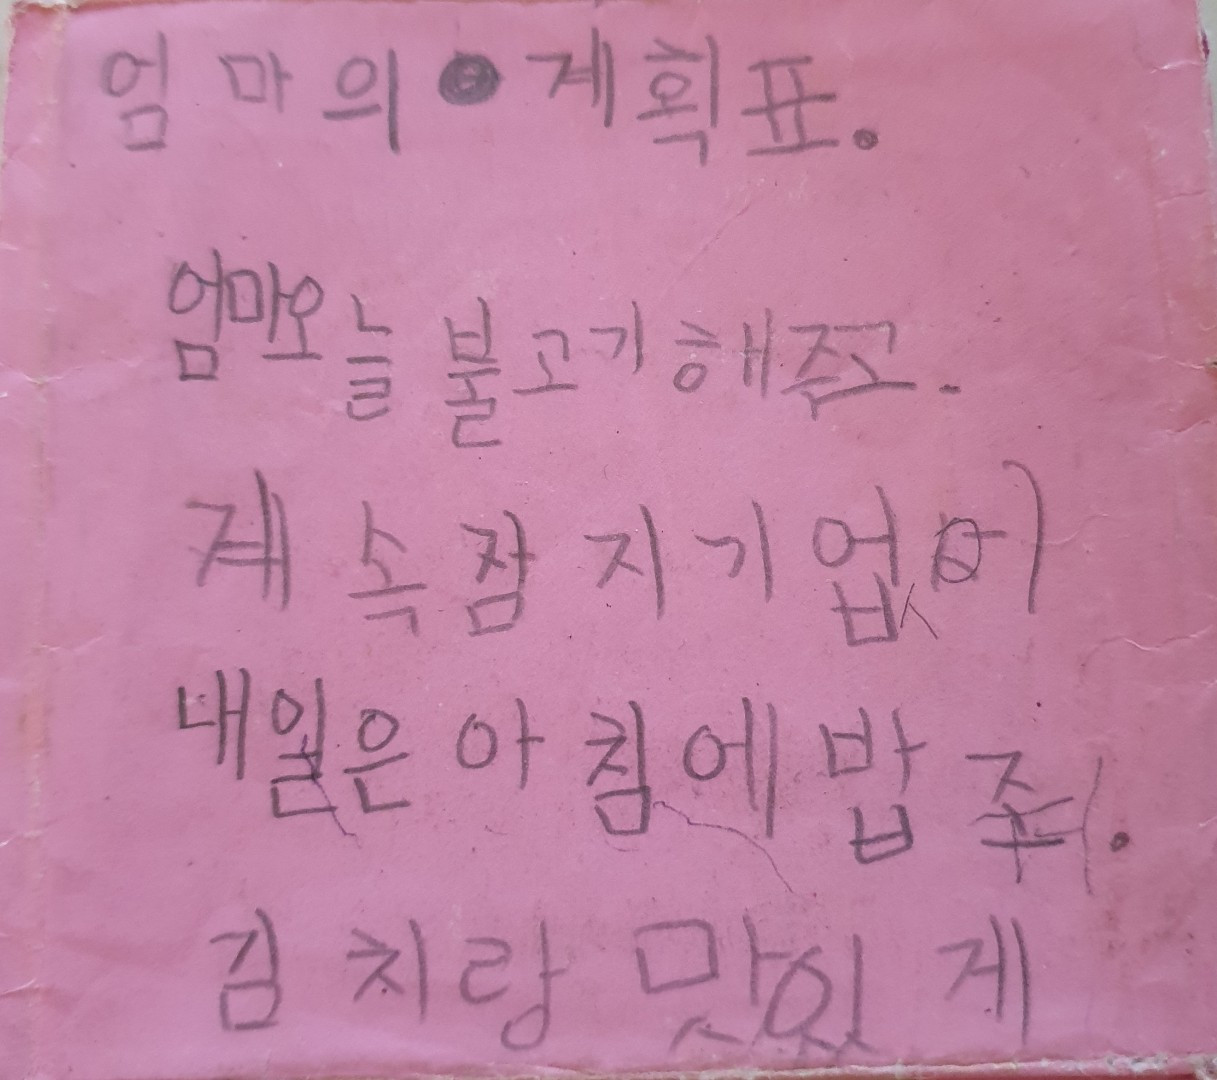 엄마의 계획표.
엄마오늘 불고기 해주고.
계속잠 자기 없어
내일은 아침에 밥 줘.
김치랑 맛있게